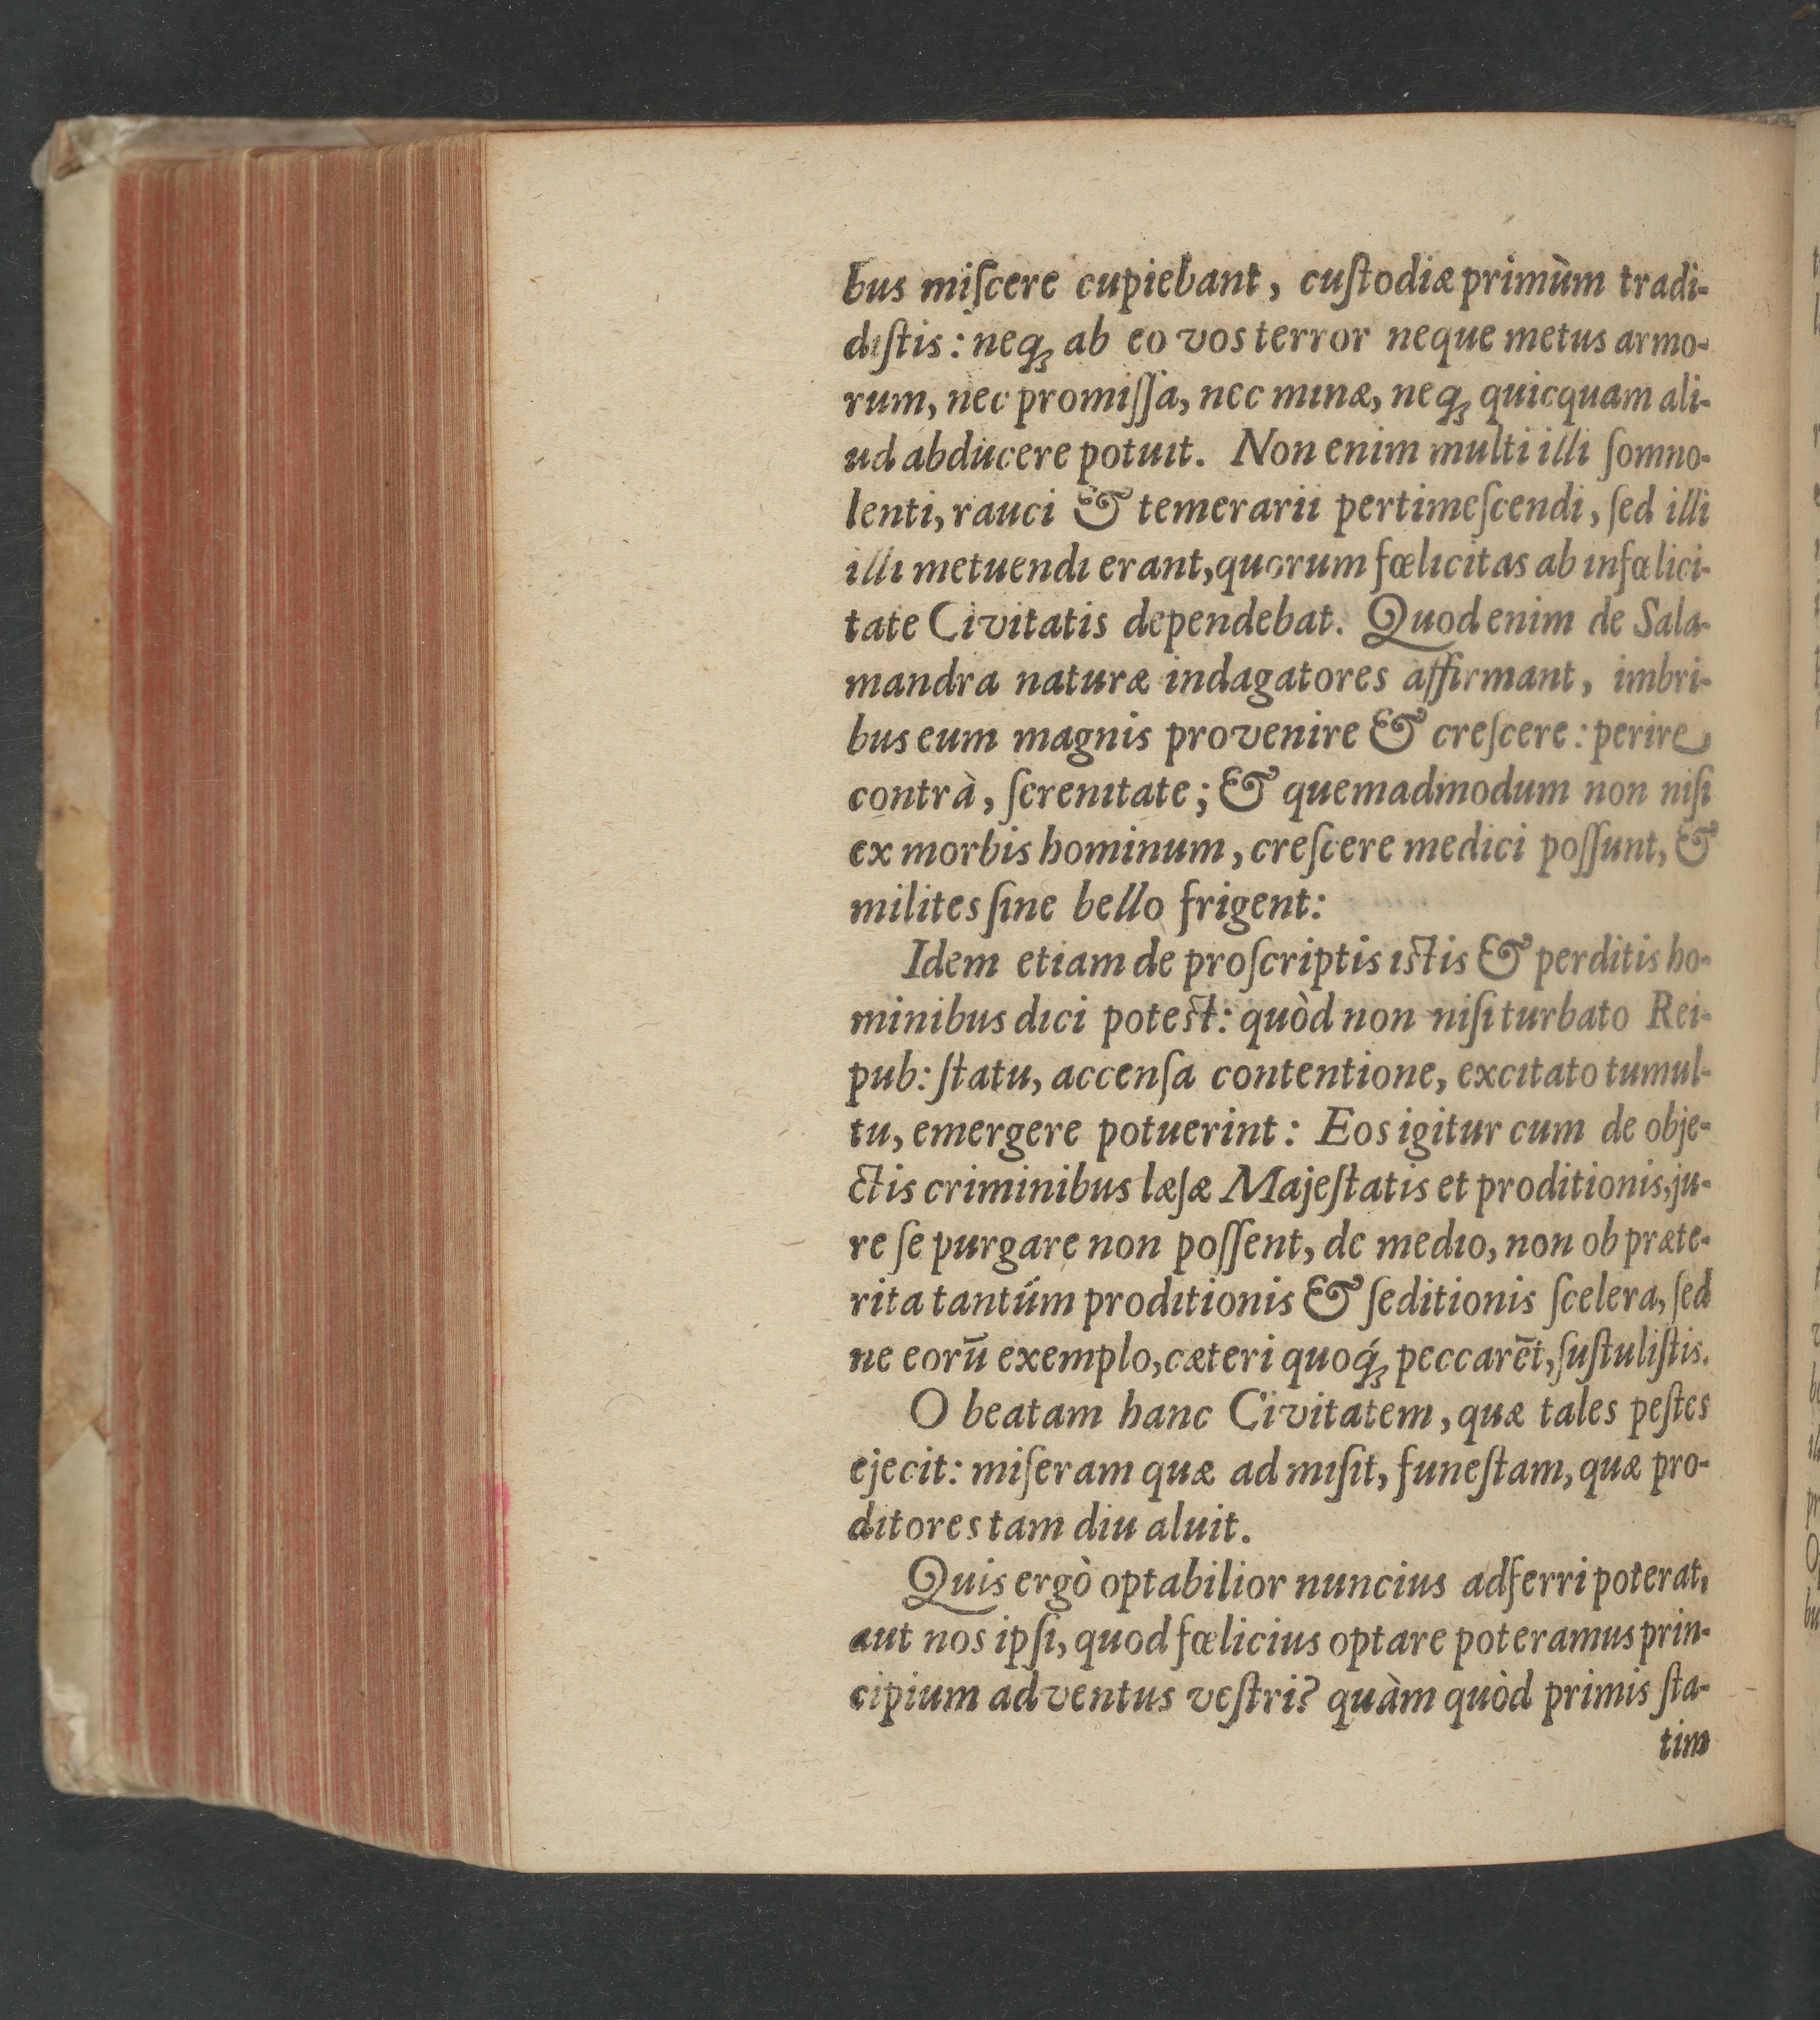 bus miſcere cupiebant, cuſtodiæ primùm tradi-
diſtis: neq́ꝫ ab eo vos terror neque metus armo-
rum, nec promiſſa, nec minæ, neqꝫ quicquam ali-
ud abducere potuit. Non enim multi illi ſomno-
lenti, rauci & temerarii pertimeſcendi, ſed illi
illi metuendi erant, quorum fœlicitas ab infœlici-
tate Civitatis dependebat. Quod enim de Sala-
mandra naturæ indagatores affirmant, imbri-
bus eum magnis provenire & creſcere: perire
contrà, ſerenitate; & quemadmodum non niſi
ex morbis hominum, creſcere medici poſſunt, &
milites ſine bello frigent:
Idem etiam de proſcriptis istis & perditis ho-
minibus dici potest: quòd non niſi turbato Rei-
pub: ſtatu, accenſa contentione, excitato tumul-
tu, emergere potuerint: Eos igitur cum de obje-
ctis criminibus læſæ Majeſtatis et proditionis, ju-
re ſe purgare non poſſent, de medio, non ob præte-
rita tantúm proditionis & ſeditionis ſcelera, ſed
ne eorū exemplo, cæteri quoq́ꝫ peccarēt, ſuſtuliſtis.
O beatam hanc Civitatem, quæ tales peſtes
ejecit: miſeram quæ admiſit, funeſtam, quæ pro-
ditores tam diu aluit.
Quis ergò optabilior nuncius adferri poterat,
aut nos ipſi, quod fœlicius optare poteramus prin-
cipium adventus veſtri? quàm quòd primis ſta-
tim